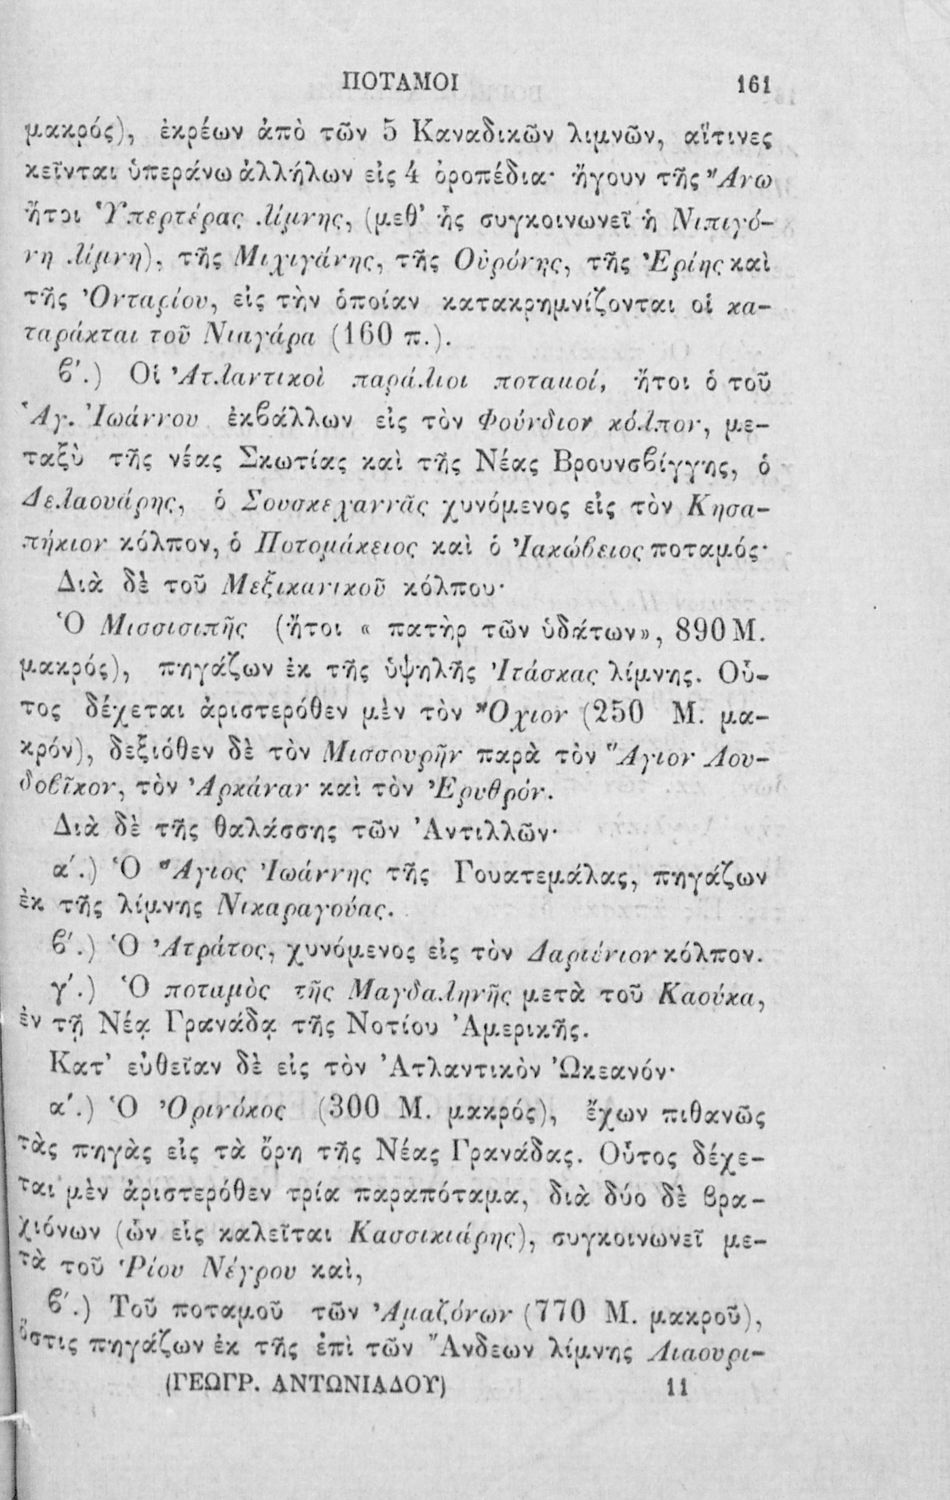 ΠΟΤΑΜΟΙ 161
μακρός), ἐκρέων ἀπὸ τῶν 5 Καναδικῶν λιμνῶν, αἵτινες
κεῖνται ὑπεράνω ἀλλήλων εἰς 4 ὀροπέδια· ἤγουν τῆς Ἄνω
ἤτοι Ὑπερτέρας λίμνης, (μεθ᾽ ἧς συγκοινωνεῖ ἡ Νιπιγό-
νη λίμνη), τῆς Μιχιγάνης, τῆς Οὐρόνης, τῆς Ἐρίης καὶ
τῆς Ὀνταρίου, εἰς τὴν ὁποίαν κατακρημνίζονται οἱ κα-
ταράκται τοῦ Νιαγάρα (160 π.).
ϐ΄.) Οἱ Ἀτλαντικοὶ παράλιοι ποταμοί, ἤτοι ὁ τοῦ
Ἁγ. Ἰωάννου ἐκϐάλλων εἰς τὸν Φούνδιον κόλπον, με-
ταξὺ τῆς νέας Σκωτίας καὶ τῆς Νέας Βρουνσϐίγγης, ὁ
Δελαουάρης, ὁ Σουσκεχαννᾶς χυνόμενος εἰς τὸν Κησα-
πήκιον κόλπον, ὁ Ποτομάκειος καὶ ὁ Ἰακώϐειος ποταμός·
Διὰ δὲ τοῦ Μεξικανικοῦ κόλπου·
Ὁ Μισσισιπῆς (ἤτοι « πατὴρ τῶν ὑδάτων», 890 Μ.
μακρός), πηγάζων ἐκ τῆς ὑψηλῆς Ἰτάσκας λίμνης. Οὗ-
τος δέχεται ἀριστερόθεν μὲν τὸν Ὄχιον (250 Μ. μα-
κρόν), δεξιόθεν δὲ τὸν Μισσουρῆν παρὰ τὸν Ἅγιον Λου-
δοϐῖκον, τὸν Ἀρκάναν καὶ τὸν Ἐρυθρόν.
Διὰ δὲ τῆς θαλάσσης τῶν Ἀντιλλῶν·
α΄.) Ὁ Ἅγιος Ἰωάννης τῆς Γουατεμάλας, πηγάζων
ἐκ τῆς λίμνης Νικαραγούας.
ϐ΄.) Ὁ Ἀτράτος, χυνόμενος εἰς τὸν Δαριένιον κόλπον.
γ΄.) Ὁ ποταμὸς τῆς Μαγδαληνῆς μετὰ τοῦ Καούκα,
ἐν τῇ Νέᾳ Γρανάδᾳ τῆς Νοτίου Ἀμερικῆς.
Κατ᾽ εὐθεῖαν δὲ εἰς τὸν Ἀτλαντικὸν Ὠκεανόν·
α΄.) Ὁ Ὀρινόκος (300 Μ. μακρός), ἔχων πιθανῶς
τὰς πηγὰς εἰς τὰ ὄρη τῆς Νέας Γρανάδας. Οὗτος δέχε-
ται μὲν ἀριστερόθεν τρία παραπόταμα, διὰ δύο δὲ ϐρα-
χιόνων (ὧν εἷς καλεῖται Κασσικιάρης), συγκοινωνεῖ με-
τὰ τοῦ Ῥίου Νέγρου καὶ,
ϐ΄.) Τοῦ ποταμοῦ τῶν Ἀμαζόνων (770 Μ. μακροῦ),
ὅστις πηγάζων ἐκ τῆς ἐπὶ τῶν Ἄνδεων λίμνης Λιαουρι-
(ΓΕΩΓΡ. ΑΝΤΩΝΙΑΔΟΥ) 11